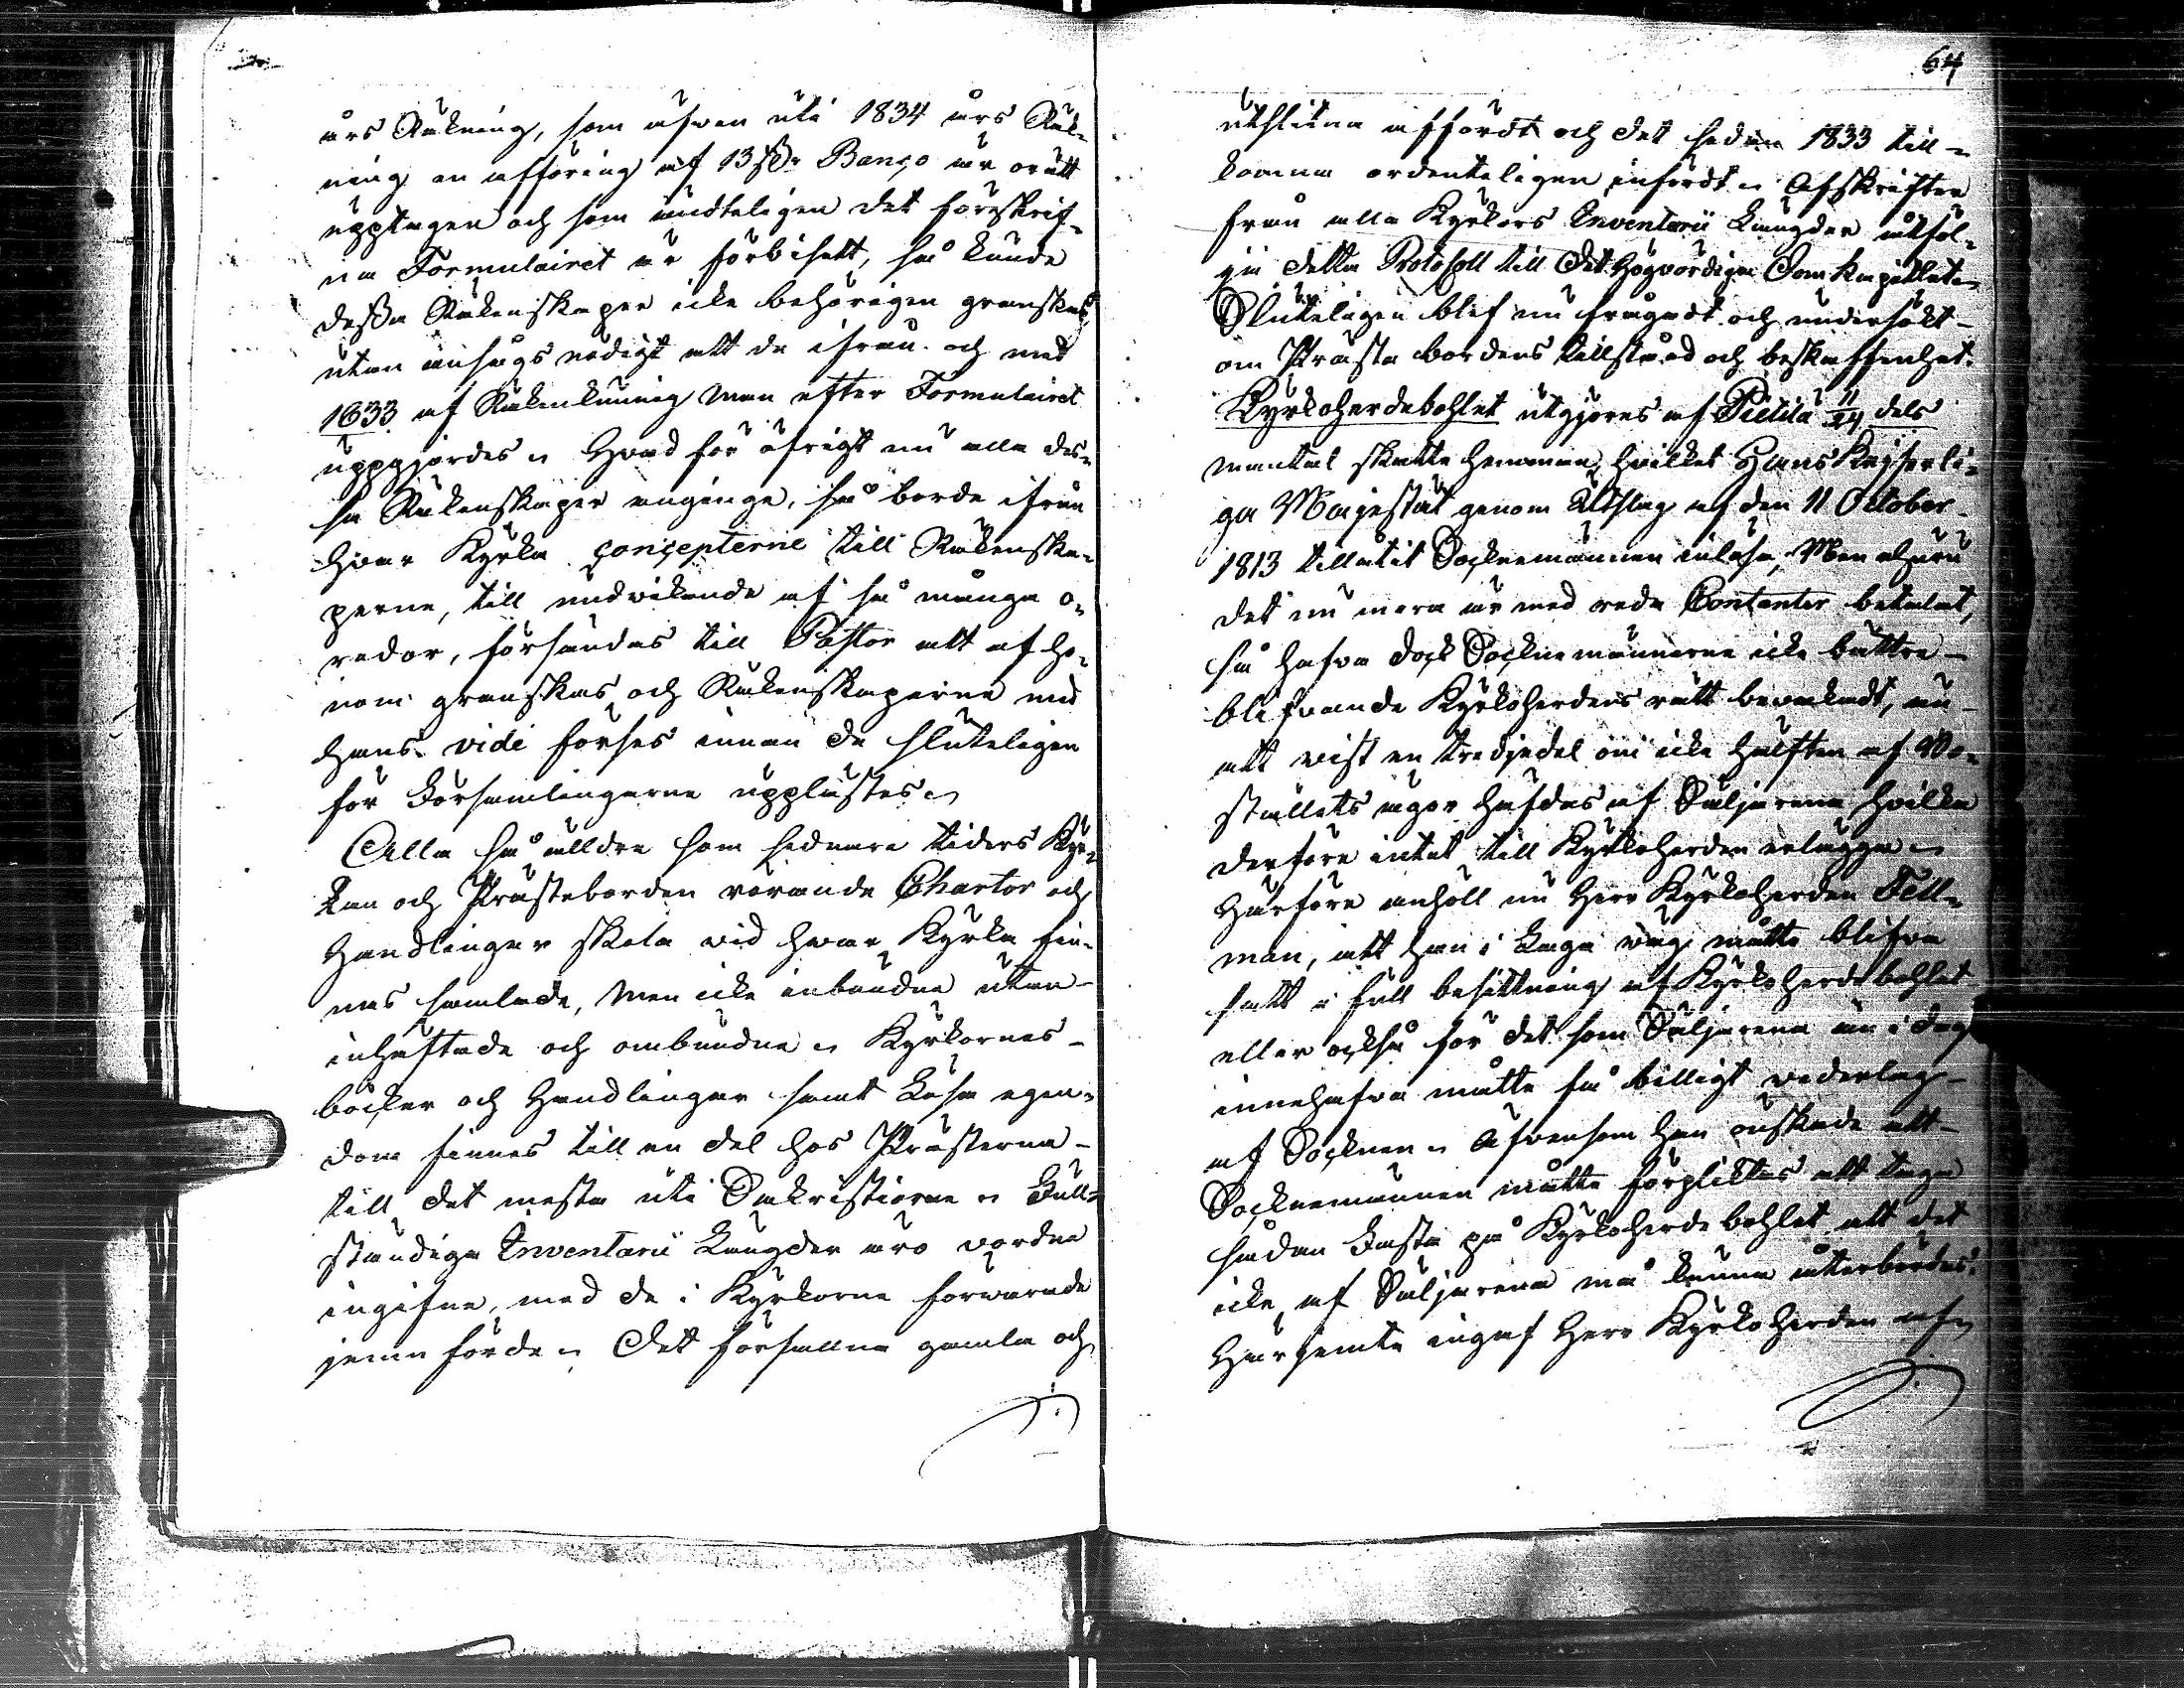 års Räkning, som äfven uti 1834 års Räk¬
ning en afföring af 13 Rdr Banco är orätt
upptagen och som ändteligen det föreskrif¬
na Formulairet är förbisett, så kunde
dessa Räkenskaper icke behörigen granskas,
utan ansågs nödigt att de ifrån och med
1833 af Räkenkunnig man efter Formulairet
uppgjordes. Hvad för öfrigt nu alla des¬
sa Räkenskaper anginge, så borde ifrån
hvar Kyrka concepterne till Räkenska¬
perne, till undvikande af så många o¬
redor, försändas till Pastor att af ho¬
nom granskas och Räkenskaperna med
hans vidi förses innan de sluteligen
för Församlingarne upplästes.
Alla så älldre som sednare tiders Kyr¬
kan och Prästeborden rörande Chartor och
Handlingar skola vid hvar Kyrka fin¬
nas samlade, men icke inbundna utan
inhäftade och ombundna. Kyrkornes
böcker och Handlingar samt Lösa egen¬
dom finnes till en del hos Prästerna
till det mesta uti Sakristiorna. Full¬
ständiga Inventarii Längder äro vordne
ingifne, med de i Kyrkorne förvarade
jemnförde. Det förfallna gamla och
64
utslitna affördt och det sedan 1833 till¬
komna ordenteligen infördt. Afskrifter
från alla Kyrkors Inventarii Längder åtföl¬
ja detta Protocoll till Det Högvördiga Domkapitlet.
Sluteligen blef nu frågadt och undersökt
om Prästa bordens tillstånd och beskaffenhet.
Kyrkoherdebohlet utgjöres af Pietilä 11/24 dels
mantal skatte hemman, hvilket Hans Kejserli¬
ga Majestät genom Utslag af den 11 October
1813 tillåtit Socknemännen inlösa, Men ehuru
det nu mera är med reda Contanter betalat,
så hafva dock Socknemännerne icke bättre
blifvande Kyrkoherdens rätt bevakadt, än
att vist en tredjedel om icke hälften af Bo¬
ställets ägor häfdas af Säljarena hvilka
derföre intet till Kyrkoherden erlägga.
Härföre anhöll nu Herr Kyrkoherden Fell¬
man, att han i Laga väg måtte blifva
satt i full besittning af Kyrkoherdebohlet
eller också för det som Säljarena än i dag
innehafva måtte få billigt vederlag
af Socknen. Äfvensom han önskade att
Socknemännen måtte förpliktas att taga
sådan Fasta på Kyrkoherde bohlet att det
icke af Säljarena må kunna återbördas.
Härjemte ingaf Herr Kyrkoherden af